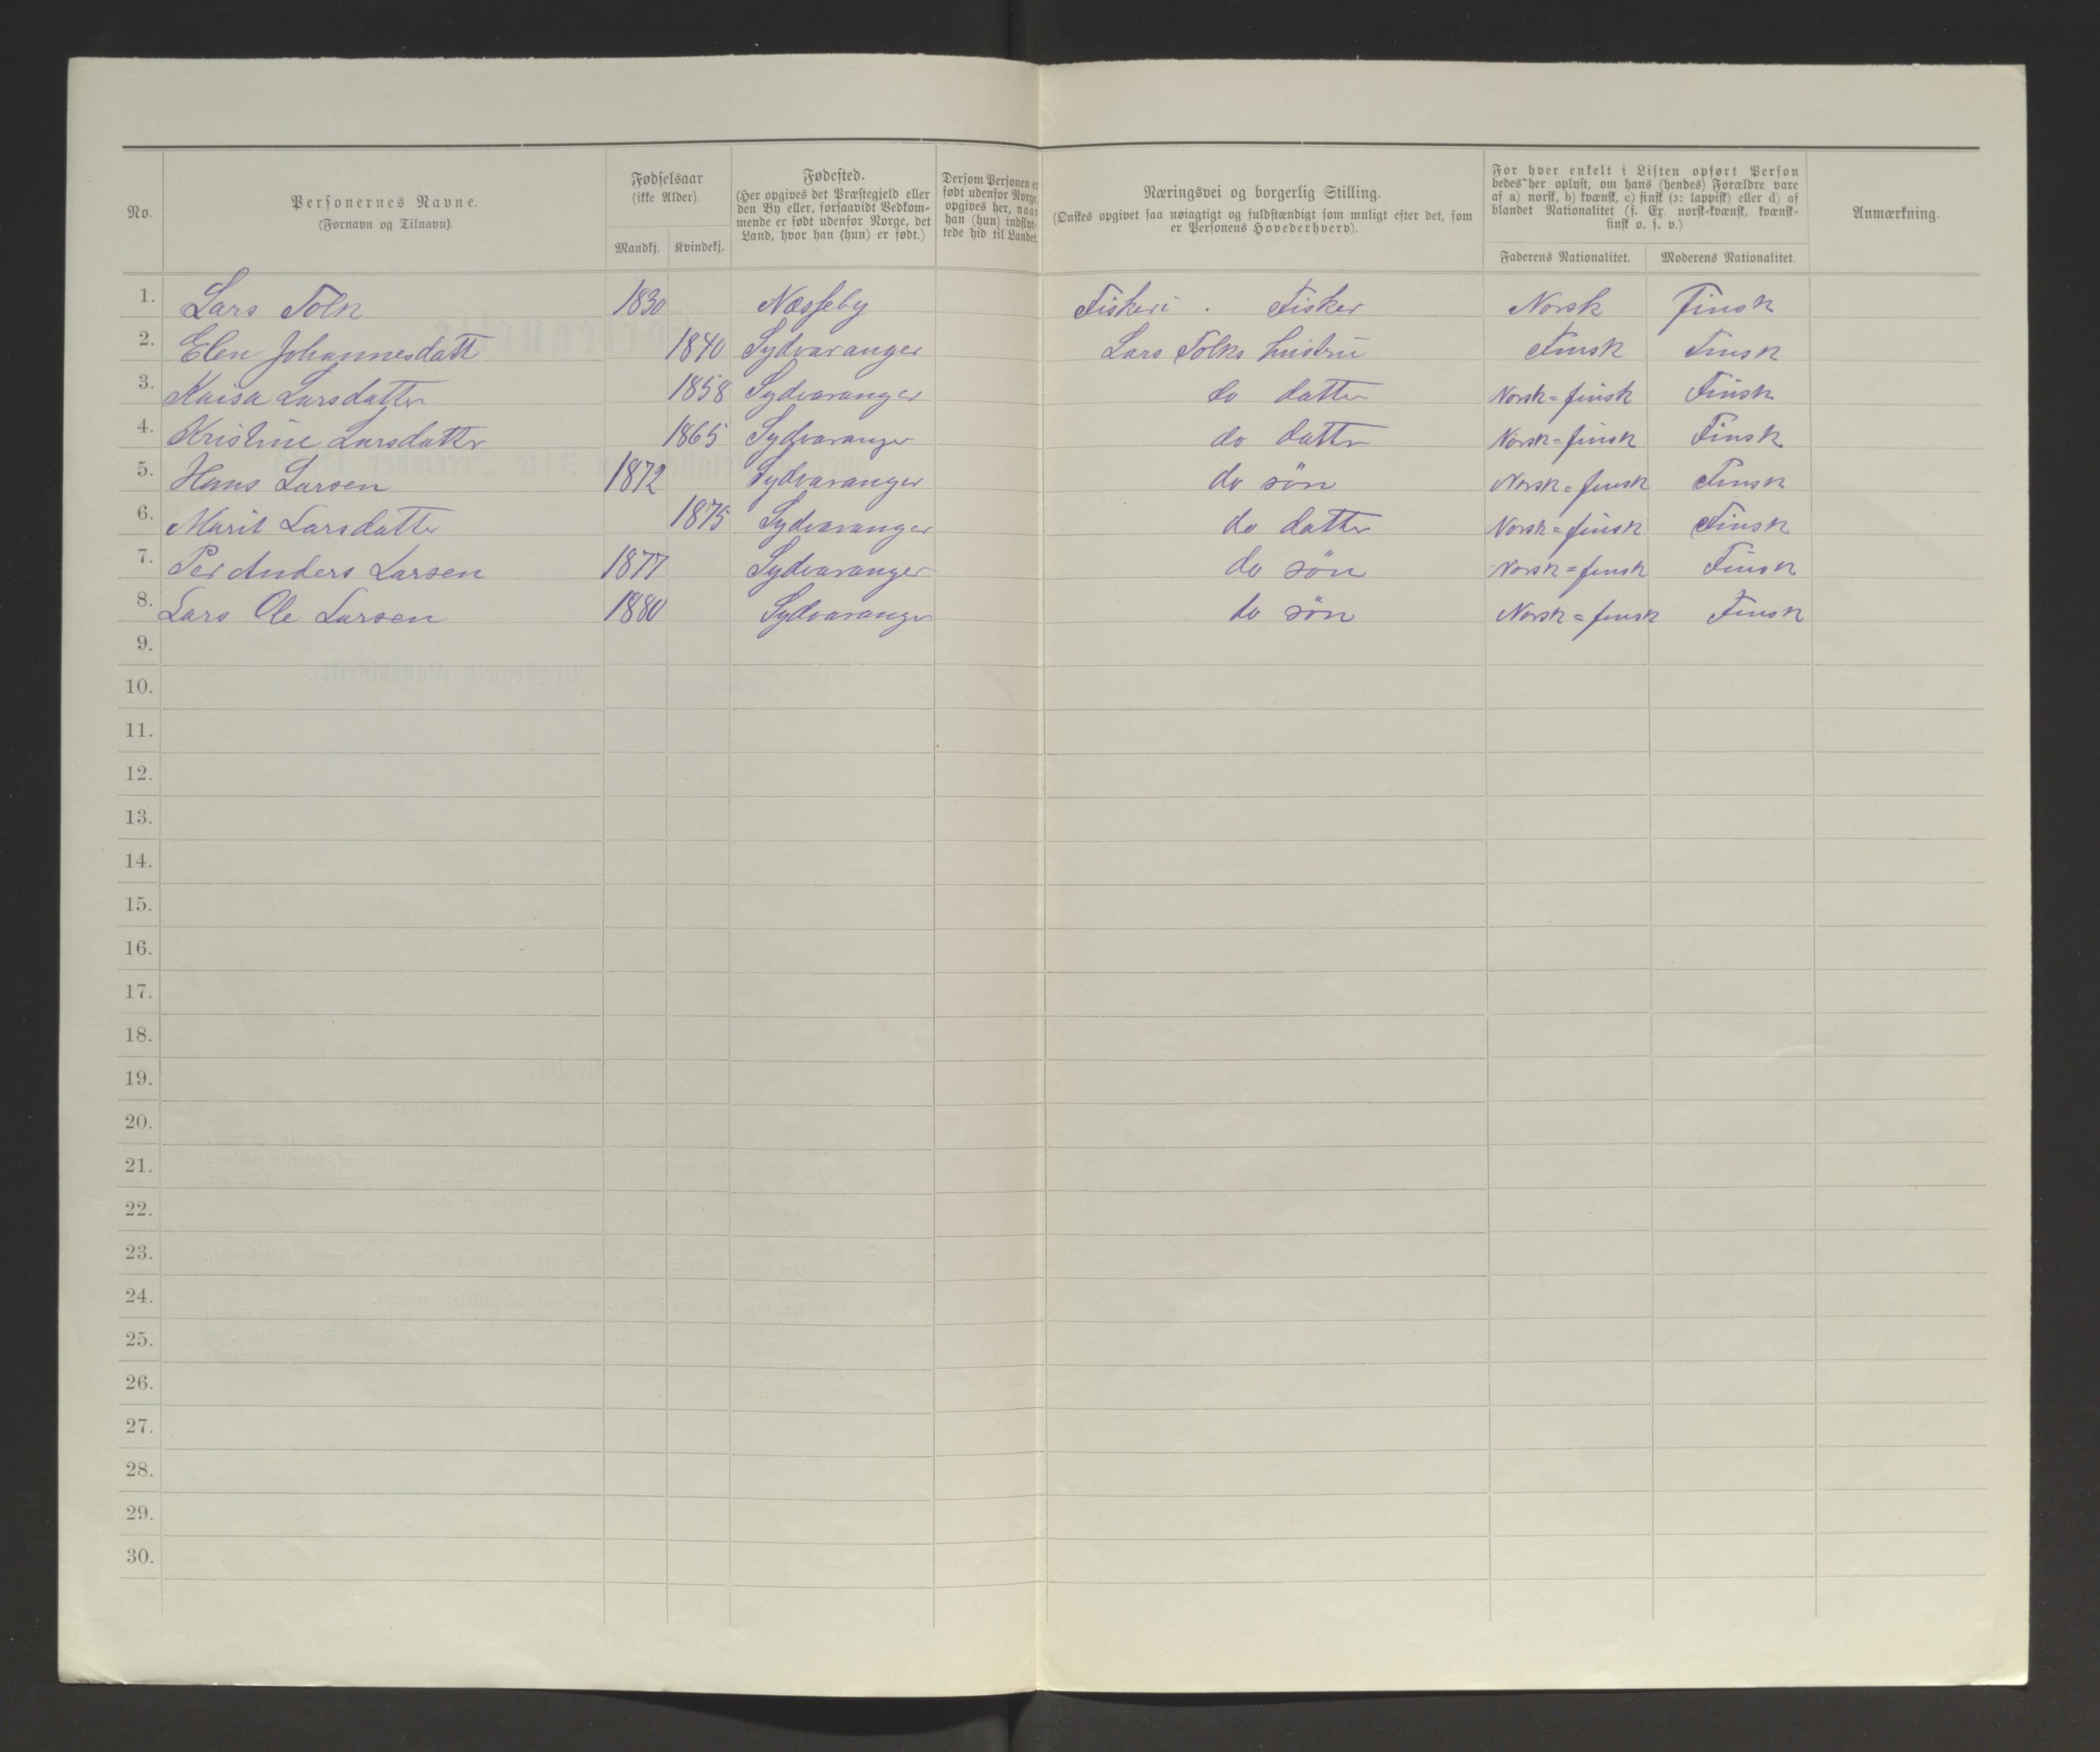 No.
Personernes Navne.
(Fornavn og Tilnavn).
Fødselsaar
(ikke Alder).
Mandkj. Kvindekj.
Fødested.
(Her opgives det Præstegjeld eller
den By eller, forsaavidt Vedkom-
mende er født udenfor Norge, det
Land, hvor han (hun) er født.)
Dersom Personen er
født udenfor Norge,
opgives her, naar
han (hun) indflyt-
tede hid til Landet.
Næringsvei og borgerlig Stilling.
(Ønskes opgivet saa nøiagtigt og fuldstændigt som muligt efter det, som
er Personens Hovederhverv).
For hver enkelt i Listen opført Person
bedes her oplyst, om hans (hendes) Forældre vare
af a) norsk, b) kvænsk, c) finsk (ɔ: lappisk) eller d) af
blandet Nationalitet (s. Ex. norsk-kvænsk, kvænsk-
finsk o. s. v.)
Faderens Nationalitet. Moderens Nationalitet.
Anmærkning.
1. Lars Tolk 1830 Næsseby Fiskeri . Fisker Norsk finsk
2. Elen Johannesdatt 1840 Sydvaranger Lars Tolks hustru Finsk Finsk
3. Kaisa Larsdatter 1858 Sydvaranger do datter Norsk=finsk Finsk
4. Kristine Larsdatter 1865 Sydvaranger do datter Norsk=finsk Finsk
5. Hans Larsen 1872 Sydvaranger do søn Norsk=finsk Finsk
6. Marit Larsdatter 1875 Sydvaranger do datter Norsk=finsk Finsk
7. Per Anders Larsen 1877 Sydvaranger do søn Norsk=finsk Finsk
8. Lars Ole Larsen 1880 Sydvaranger do søn Norsk=finsk Finsk
9.
10.
11.
12.
13.
14.
15.
16.
17.
18.
19.
20.
21.
22.
23.
24.
25.
26.
27.
28.
29.
30.